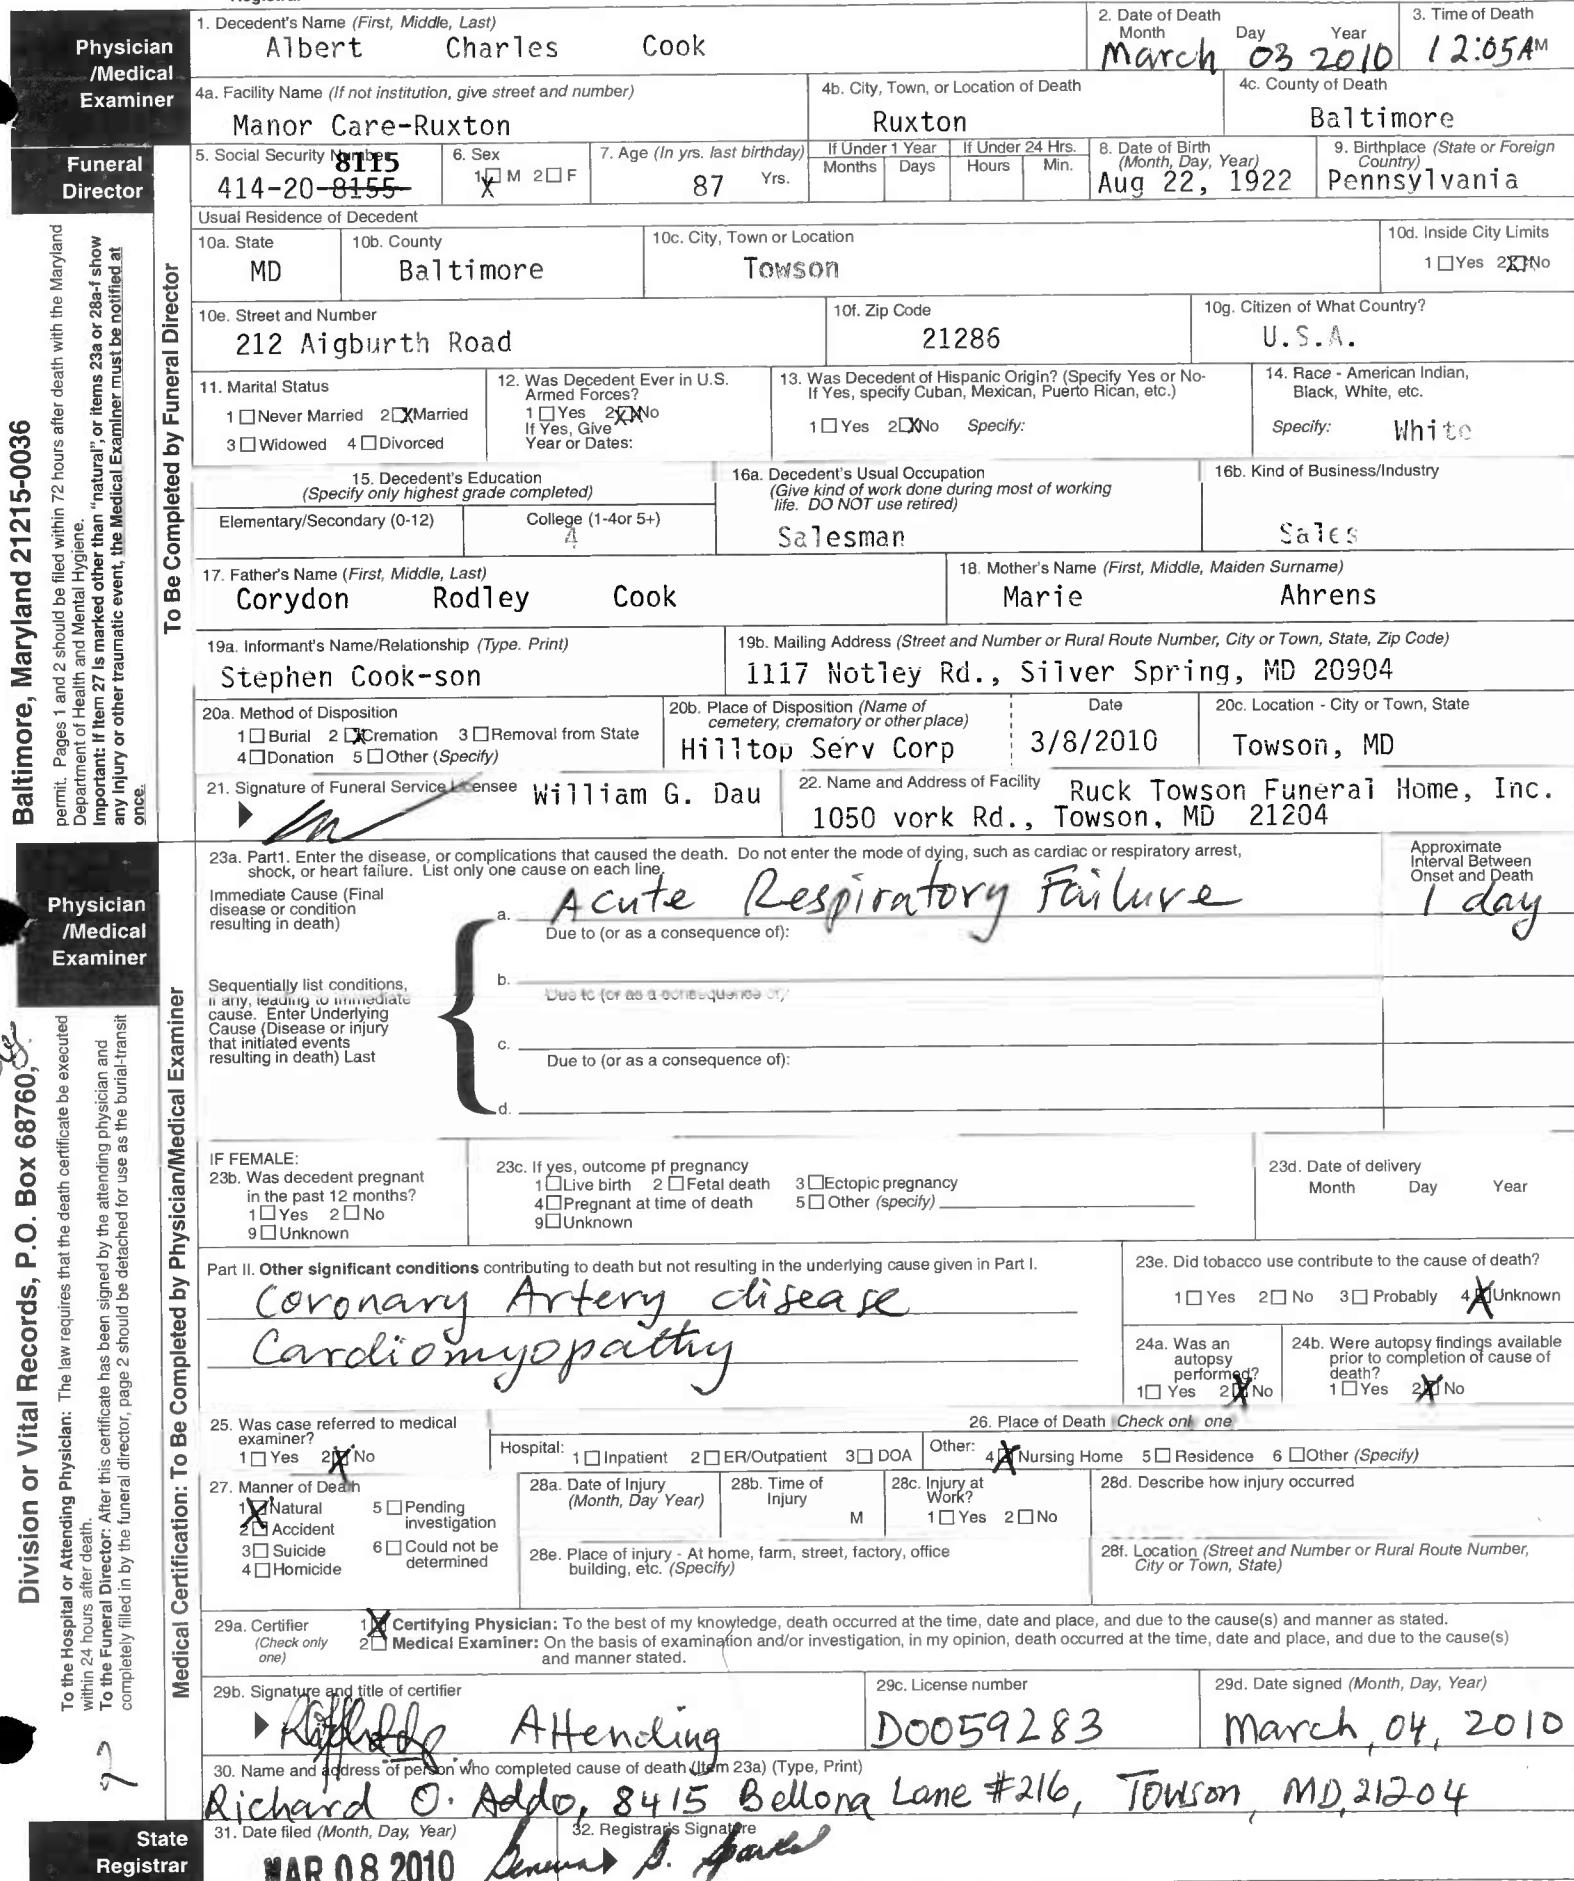 Physician
/Medical
Examiner
1. Decedent's Name (First, Middle, Last)
Albert Charles Cook
2. Date of Death
Month Day Year
March 03 2010
3. Time of Death
12:05 AM
4a. Facility Name (If not institution, give street and number)
Manor Care-Ruxton
4b. City, Town, or Location of Death
Ruxton
4c. County of Death
Baltimore
Funeral
Director
5. Social Security Number
8115
414-20-8155
6. Sex
1 X M 2 ☐ F
7. Age (In yrs. last birthday)
87 Yrs.
If Under 1 Year
Months Days
If Under 24 Hrs.
Hours Min.
8. Date of Birth
(Month, Day, Year)
Aug 22, 1922
9. Birthplace (State or Foreign
Country)
Pennsylvania
Usual Residence of Decedent
10a. State
MD
10b. County
Baltimore
10c. City, Town or Location
Towson
10d. Inside City Limits
1 ☐ Yes 2 X No
10e. Street and Number
212 Aigburth Road
10f. Zip Code
21286
10g. Citizen of What Country?
U.S.A.
11. Marital Status
1 ☐ Never Married 2 X Married
3 ☐ Widowed 4 ☐ Divorced
12. Was Decedent Ever in U.S.
Armed Forces?
1 ☐ Yes 2 X No
If Yes, Give
Year or Dates:
13. Was Decedent of Hispanic Origin? (Specify Yes or No-
If Yes, specify Cuban, Mexican, Puerto Rican, etc.)
1 ☐ Yes 2 X No Specify:
14. Race - American Indian,
Black, White, etc.
Specify: White
15. Decedent's Education
(Specify only highest grade completed)
Elementary/Secondary (0-12)
College (1-4or 5+)
4
16a. Decedent's Usual Occupation
(Give kind of work done during most of working
life. DO NOT use retired)
Salesman
16b. Kind of Business/Industry
Sales
17. Father's Name (First, Middle, Last)
Corydon Rodley Cook
18. Mother's Name (First, Middle, Maiden Surname)
Marie Ahrens
19a. Informant's Name/Relationship (Type. Print)
Stephen Cook-son
19b. Mailing Address (Street and Number or Rural Route Number, City or Town, State, Zip Code)
1117 Notley Rd., Silver Spring, MD 20904
20a. Method of Disposition
1 ☐ Burial 2 X Cremation 3 ☐ Removal from State
4 ☐ Donation 5 ☐ Other (Specify)
20b. Place of Disposition (Name of
cemetery, crematory or other place)
Hilltop Serv Corp
Date
3/8/2010
20c. Location - City or Town, State
Towson, MD
21. Signature of Funeral Service Licensee
William G. Dau
22. Name and Address of Facility
Ruck Towson Funeral Home, Inc.
1050 vork Rd., Towson, MD 21204
To Be Completed by Funeral Director
Baltimore, Maryland 21215-0036
permit. Pages 1 and 2 should be filed within 72 hours after death with the Maryland
Department of Health and Mental Hygiene.
Important: If Item 27 is marked other than "natural", or items 23a or 28a-f show
any injury or other traumatic event, the Medical Examiner must be notified at
once.
Physician
/Medical
Examiner
23a. Part1. Enter the disease, or complications that caused the death. Do not enter the mode of dying, such as cardiac or respiratory arrest,
shock, or heart failure. List only one cause on each line.
Approximate
Interval Between
Onset and Death
Immediate Cause (Final
disease or condition
resulting in death)
a. Acute Respiratory Failure
1 day
Due to (or as a consequence of):
b.
Due to (or as a consequence of)
Sequentially list conditions,
if any, leading to immediate
cause. Enter Underlying
Cause (Disease or injury
that initiated events
resulting in death) Last
c.
Due to (or as a consequence of):
d.
IF FEMALE:
23b. Was decedent pregnant
in the past 12 months?
1 ☐ Yes 2 ☐ No
9 ☐ Unknown
23c. If yes, outcome pf pregnancy
1 ☐ Live birth 2 ☐ Fetal death 3 ☐ Ectopic pregnancy
4 ☐ Pregnant at time of death 5 ☐ Other (specify)
9 ☐ Unknown
23d. Date of delivery
Month Day Year
Part II. Other significant conditions contributing to death but not resulting in the underlying cause given in Part I.
Coronary Artery disease
Cardiomyopathy
23e. Did tobacco use contribute to the cause of death?
1 ☐ Yes 2 ☐ No 3 ☐ Probably 4 X Unknown
24a. Was an
autopsy
performed?
1 ☐ Yes 2 X No
24b. Were autopsy findings available
prior to completion of cause of
death?
1 ☐ Yes 2 X No
25. Was case referred to medical
examiner?
1 ☐ Yes 2 X No
26. Place of Death (Check onl one
Hospital: 1 ☐ Inpatient 2 ☐ ER/Outpatient 3 ☐ DOA
Other: 4 X Nursing Home 5 ☐ Residence 6 ☐ Other (Specify)
27. Manner of Death
1 X Natural 5 ☐ Pending
investigation
2 ☐ Accident
3 ☐ Suicide 6 ☐ Could not be
determined
4 ☐ Homicide
28a. Date of Injury
(Month, Day Year)
28b. Time of
Injury
M
28c. Injury at
Work?
1 ☐ Yes 2 ☐ No
28d. Describe how injury occurred
28e. Place of injury - At home, farm, street, factory, office
building, etc. (Specify)
28f. Location (Street and Number or Rural Route Number,
City or Town, State)
29a. Certifier
(Check only
one)
1 X Certifying Physician: To the best of my knowledge, death occurred at the time, date and place, and due to the cause(s) and manner as stated.
2 ☐ Medical Examiner: On the basis of examination and/or investigation, in my opinion, death occurred at the time, date and place, and due to the cause(s)
and manner stated.
29b. Signature and title of certifier
Attending
29c. License number
D0059283
29d. Date signed (Month, Day, Year)
March, 04, 2010
30. Name and address of person who completed cause of death (Item 23a) (Type, Print)
Richard O. Addo, 8415 Bellona Lane #216, Towson, MD, 21204
Medical Certification: To Be Completed by Physician/Medical Examiner
Division or Vital Records, P.O. Box 68760,
To the Hospital or Attending Physician: The law requires that the death certificate be executed
within 24 hours after death.
To the Funeral Director: After this certificate has been signed by the attending physician and
completely filled in by the funeral director, page 2 should be detached for use as the burial-transit
State
Registrar
31. Date filed (Month, Day, Year)
MAR 08 2010
32. Registrar's Signature